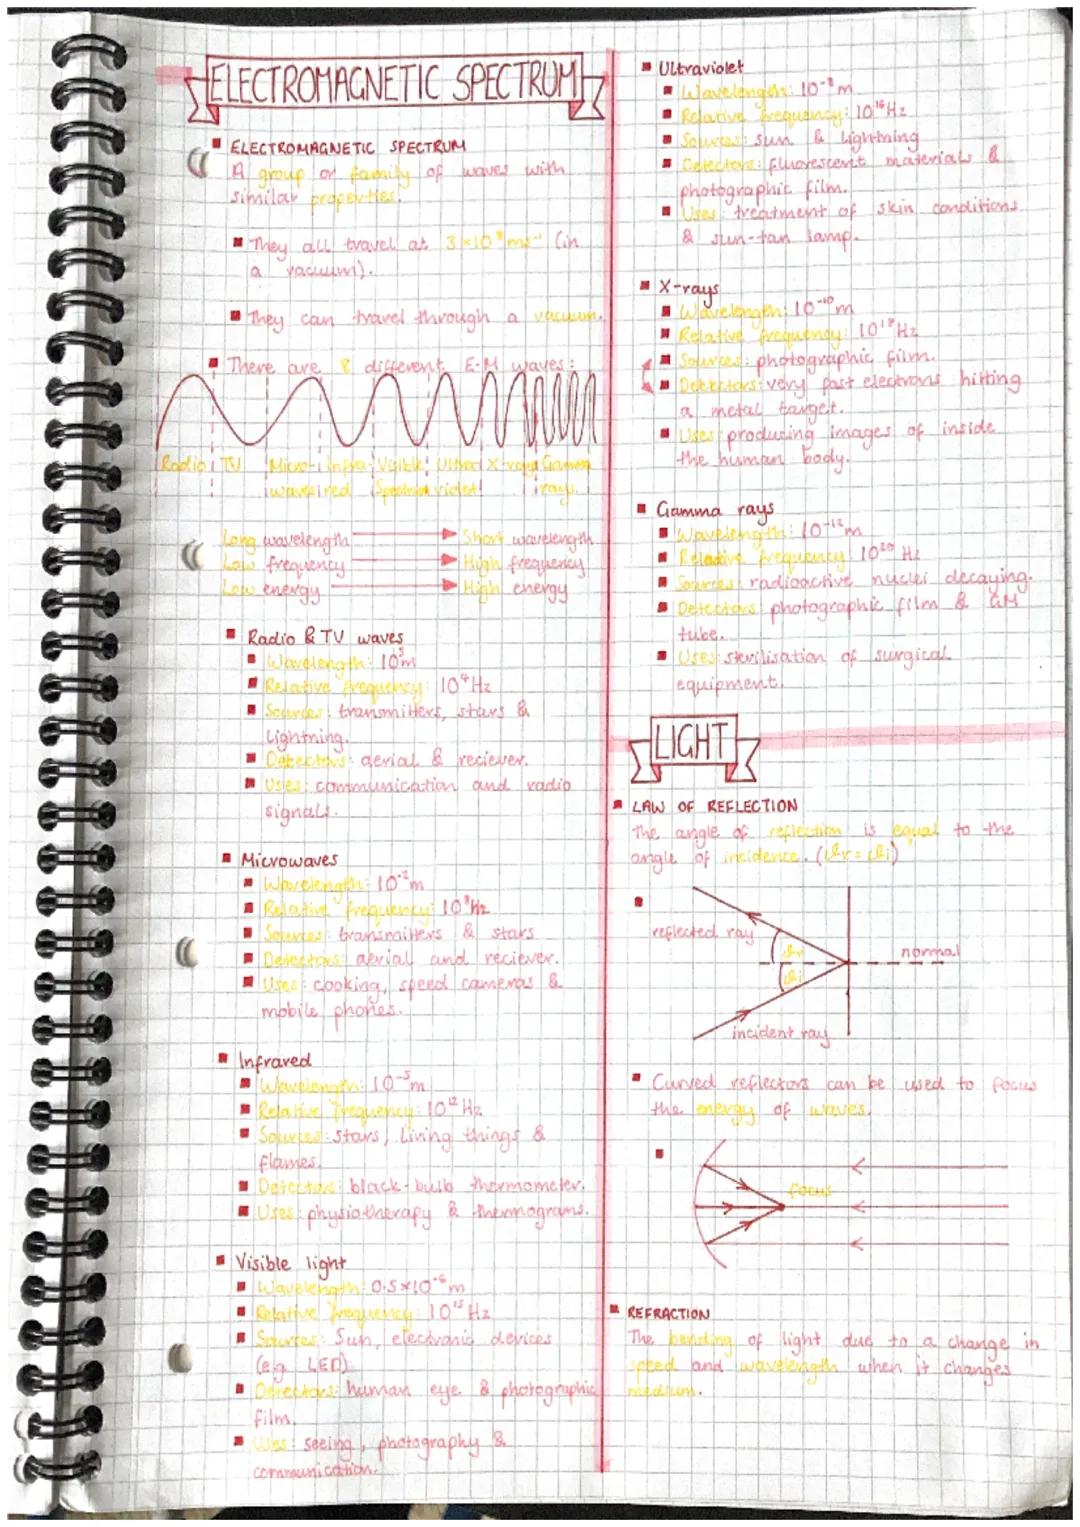 ELECTROMAGNETIC SPECTRUM
ELECTROMAGNETIC SPECTRUM
A group or family of waves with
similar properties.
They all travel at 3×10⁸ms⁻¹ (in
a vacuum).
They can travel through a vacuum.
There are 8 different E.M waves:
Radio TV Micro- Infra- Visible Ultra X-rays Gamma
waves red Spectrum violet rays
Long wavelength Short wavelength
Low frequency High frequency
Low energy High energy
Radio & TV waves
Wavelength: 10³m
Relative frequency: 10⁴Hz
Sources: transmitters, stars &
lightning.
Detectors: aerial & reciever.
Uses: communication and radio
signals.
Microwaves
Wavelength: 10⁻²m
Relative frequency: 10⁹Hz
Sources: transmitters & stars
Detectors: aerial and reciever.
Uses: cooking, speed cameras &
mobile phones.
Infrared
Wavelength: 10⁻⁵m
Relative frequency: 10¹² Hz
Sources: stars, living things &
flames.
Detectors: black-bulb thermometer.
Uses: physiotherapy & thermograms.
Visible light
Wavelength: 0.5×10⁻⁶m
Relative frequency: 10¹⁵ Hz
Sources: Sun, electronic devices
(e.g. LED)
Detectors: human eye & photographic
film.
Uses: seeing, photography &
communication.
Ultraviolet
Wavelength: 10⁻⁸m
Relative frequency: 10¹⁶Hz
Sources: sun & lightning
Detectors: fluorescent materials &
photographic film.
Uses: treatment of skin conditions
& sun-tan lamp.
X-rays
Wavelength: 10⁻¹⁰m
Relative frequency: 10¹⁸Hz
Sources: photographic film.
Detectors: very fast electrons hitting
a metal target.
Uses: producing images of inside
the human body.
Gamma rays
Wavelength: 10⁻¹²m
Relative frequency: 10²⁰ Hz
Sources: radioactive nuclei decaying.
Detectors: photographic film & GM
tube.
Uses: sterilisation of surgical
equipment.
LIGHT
LAW OF REFLECTION
The angle of reflection is equal to the
angle of incidence. (θr = θi)
reflected ray
θr
normal
θi
incident ray
Curved reflectors can be used to focus
the energy of waves.
focus
REFRACTION
The bending of light due to a change in
speed and wavelength when it changes
medium.